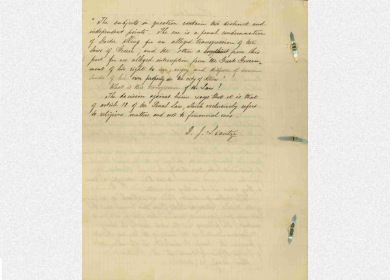 " The subjects in question contain two distinct and
independent points. The one is a penal condemnation
of        for an alleged transgression of the
laws of Greece, and the other a        from this
port for an alleged interruption from the Greek Govern-
ment of his right to use, enjoy, and dispose of
       of his own property in the city of Athens."
What is this transgression of the Law?
The decision against him says that it is that
of article 18 of the Penal Law, which exclusively refers
to religious matters and not to financial ones.